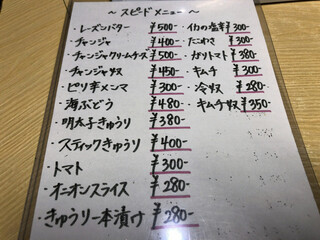 ～ スピードメニュー ～
・レーズンバター ¥500-
・チャンジャ ¥400-
・チャンジャクリームチーズ ¥500-
・チャンジャ奴 ¥450-
・ピリ辛メンマ ¥300-
・海ぶどう ¥480-
・明太子きゅうり ¥380-
・スティックきゅうり ¥400-
・トマト ¥300-
・オニオンスライス ¥280-
・きゅうり一本漬け ¥280-
・イカの塩辛 ¥300-
・たこわさ ¥300-
・ガリトマト ¥380-
・キムチ ¥300-
・冷奴 ¥280-
・キムチ奴 ¥350-